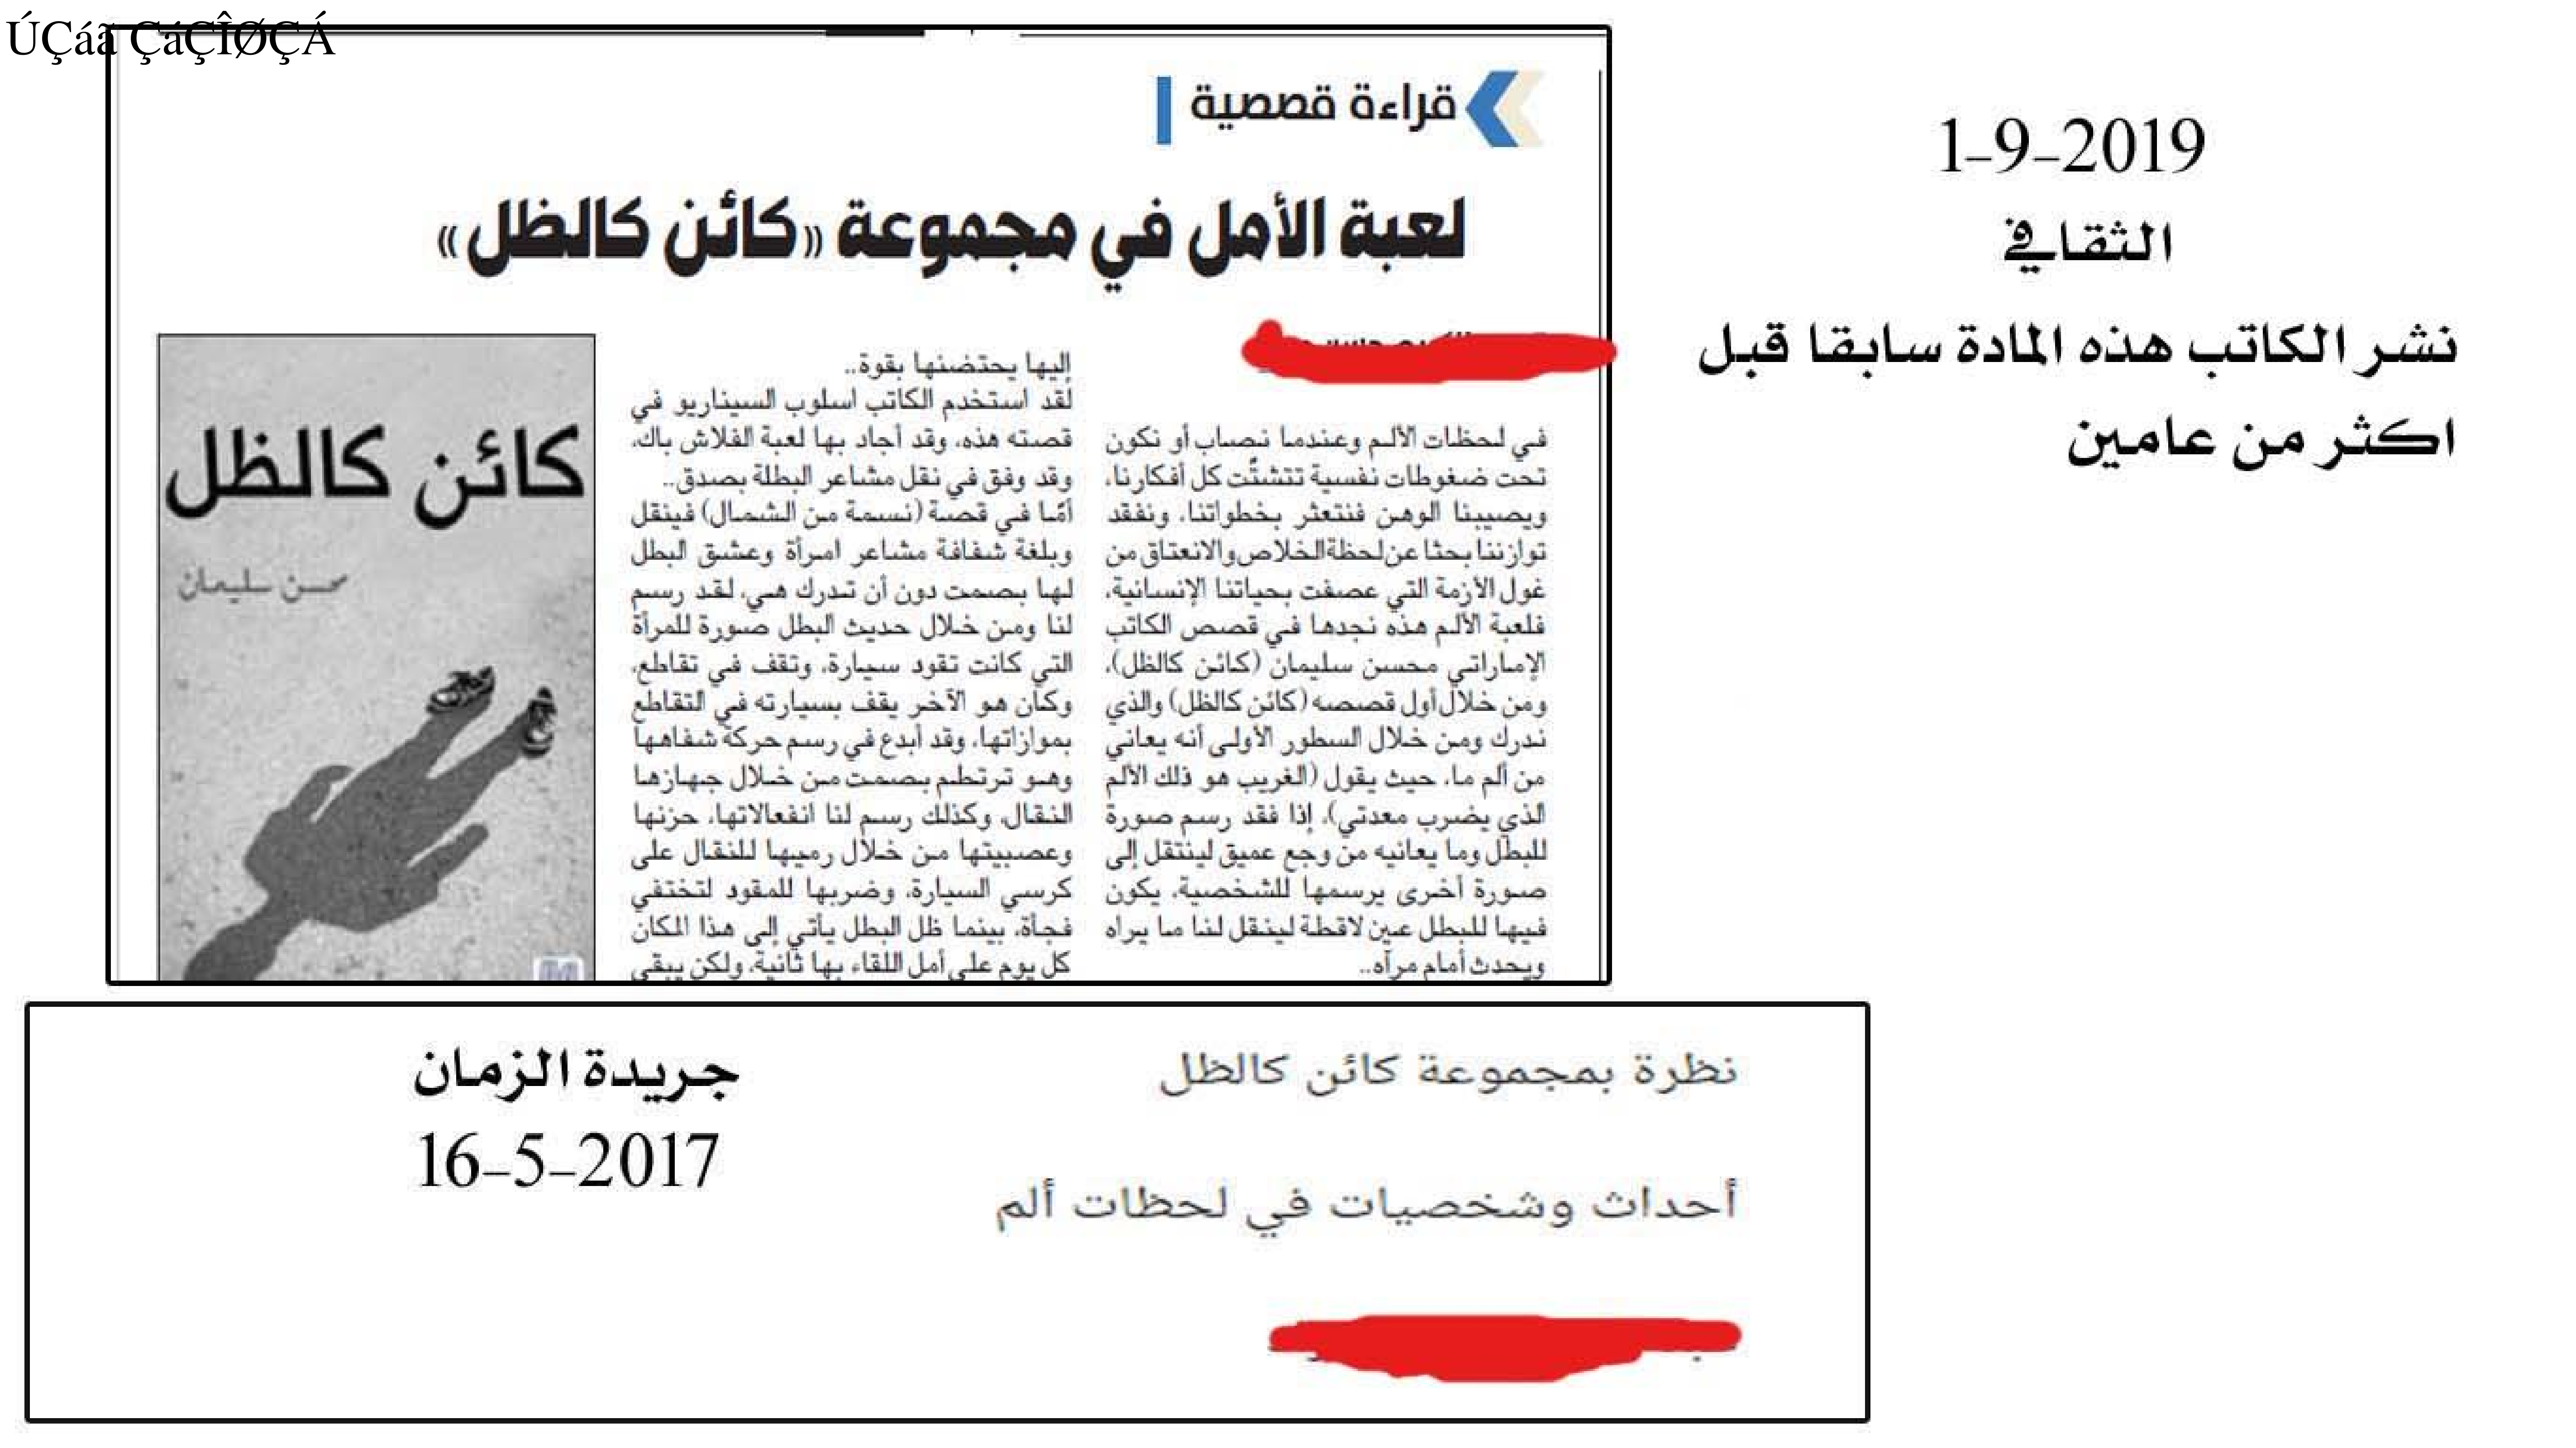 ÚÇáã ÇáÇÎØÇÁ
قراءة قصصية
لعبة الأمل في مجموعة «كائن كالظل»
في لحظات الألم وعندما نصاب أو نكون
تحت ضغوطات نفسية تتشتّت كل أفكارنا،
ويصيبنا الوهن فنتعثر بخطواتنا، ونفقد
توازننا بحثا عن لحظة الخلاص والانعتاق من
غول الأزمة التي عصفت بحياتنا الإنسانية،
فلعبة الألم هذه نجدها في قصص الكاتب
الإماراتي محسن سليمان (كائن كالظل)،
ومن خلال أول قصصه (كائن كالظل) والذي
ندرك ومن خلال السطور الأولى أنه يعاني
من ألم ما، حيث يقول (الغريب هو ذلك الألم
الذي يضرب معدتي)، إذا فقد رسم صورة
للبطل وما يعانيه من وجع عميق لينتقل إلى
صورة أخرى يرسمها للشخصية، يكون
فيها للبطل عين لاقطة لينقل لنا ما يراه
ويحدث أمام مرآه..
إليها يحتضنها بقوة..
لقد استخدم الكاتب اسلوب السيناريو في
قصته هذه، وقد أجاد بها لعبة الفلاش باك،
وقد وفق في نقل مشاعر البطلة بصدق..
أمّا في قصة (نسمة من الشمال) فينقل
وبلغة شفافة مشاعر امرأة وعشق البطل
لها بصمت دون أن تدرك هي، لقد رسم
لنا ومن خلال حديث البطل صورة للمرأة
التي كانت تقود سيارة، وتقف في تقاطع،
وكان هو الآخر يقف بسيارته في التقاطع
بموازاتها، وقد أبدع في رسم حركة شفاهها
وهو ترتطم بصمت من خلال جهازها
النقال، وكذلك رسم لنا انفعالاتها، حزنها
وعصبيتها من خلال رميها للنقال على
كرسي السيارة، وضربها للمقود لتختفي
فجأة، بينما ظل البطل يأتي إلى هذا المكان
كل يوم على أمل اللقاء بها ثانية، ولكن يبقى
كائن كالظل
محسن سليمان
1-9-2019
الثقافي
نشر الكاتب هذه المادة سابقا قبل
اكثر من عامين
نظرة بمجموعة كائن كالظل
أحداث وشخصيات في لحظات ألم
جريدة الزمان
16-5-2017